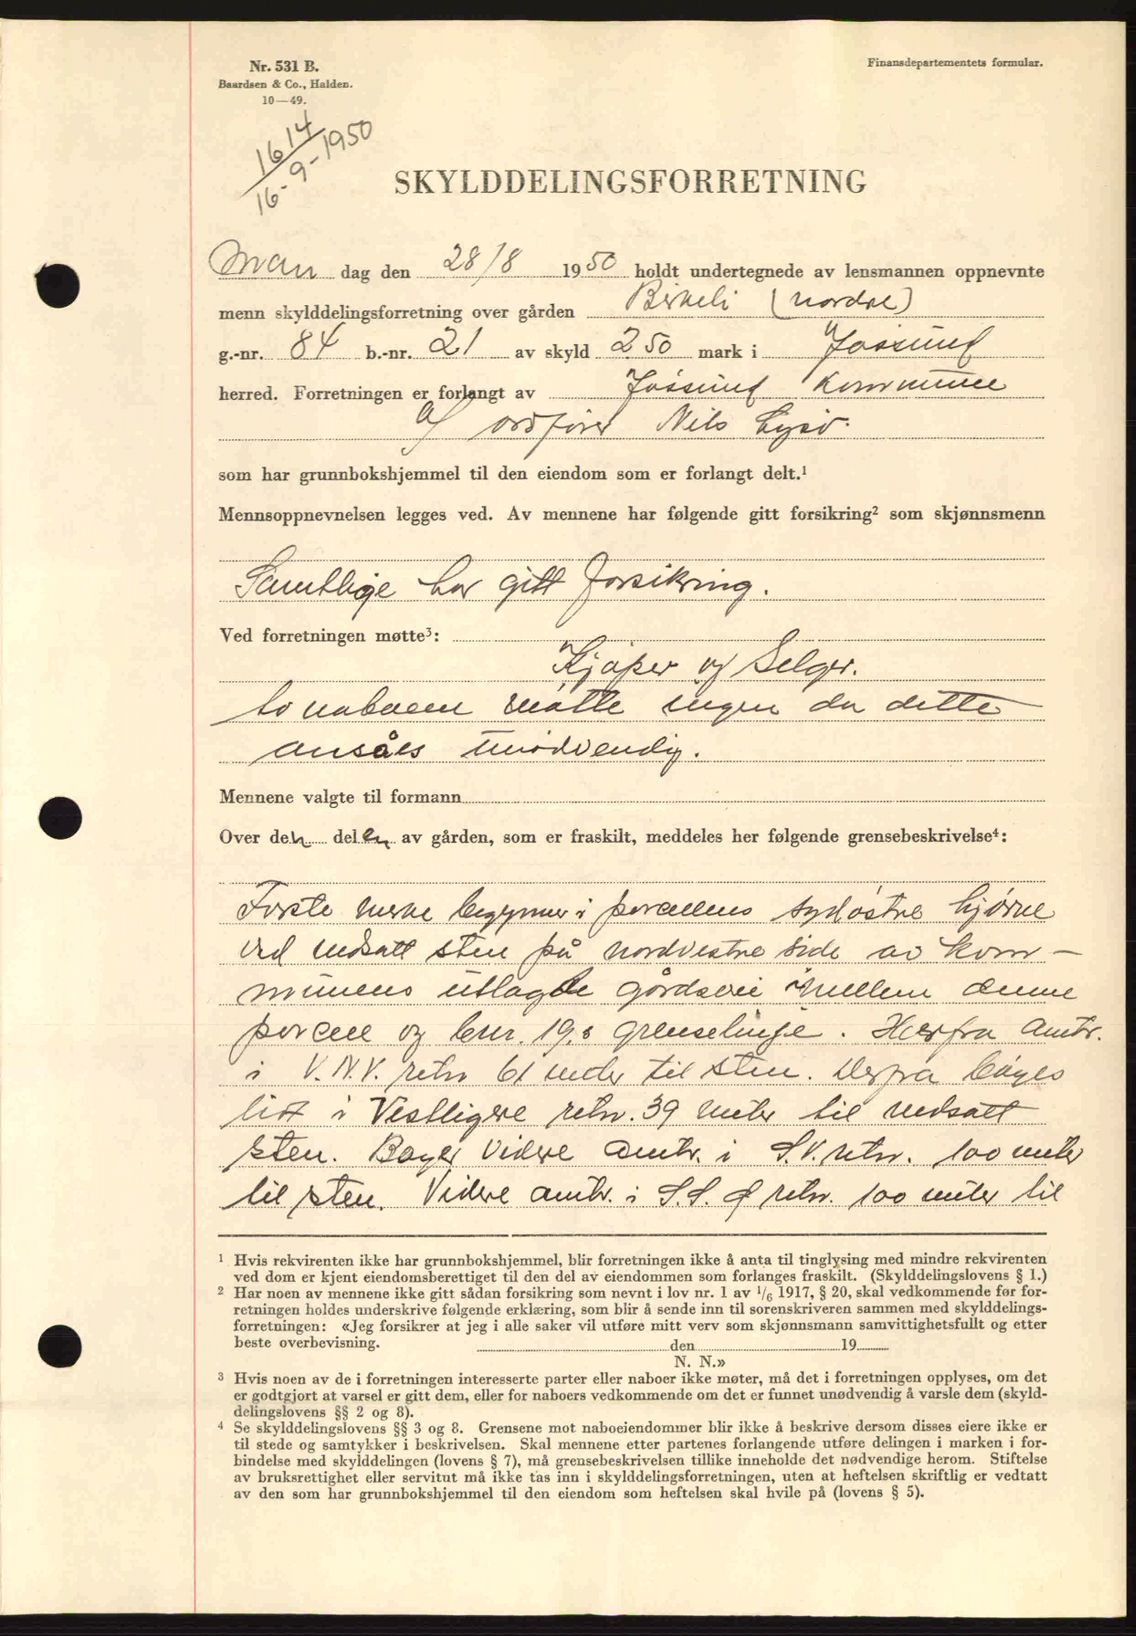 Nr. 531 B.
Baardsen & Co., Halden.
10—49.
Finansdepartementets formular.
1614
16-9-1950
SKYLDDELINGSFORRETNING
Man dag den 28/8 1950 holdt undertegnede av lensmannen oppnevnte
menn skylddelingsforretning over gården Birkeli (nordre)
g.-nr. 84 b.-nr. 21 av skyld 2.50 mark i Jøssund
herred. Forretningen er forlangt av Jøssund kommune
v/ ordfører Nils Lysø.
som har grunnbokshjemmel til den eiendom som er forlangt delt.¹
Mennsoppnevnelsen legges ved. Av mennene har følgende gitt forsikring² som skjønnsmenn
Samtlige har gitt forsikring.
Ved forretningen møtte³:
Kjøper og Selger.
av naboene møtte ingen da dette
ansåes unødvendig.
Mennene valgte til formann
Over den delen av gården, som er fraskilt, meddeles her følgende grensebeskrivelse⁴:
Første merke begynner i parcellens sydøstre hjørne
ved nedsatt sten på nordvestre side av kom-
munens utlagte gårdsvei mellem denne
parcell og bnr. 19,s grenselinje. Herfra omtr.
i V.N.V. retn 61 meter til sten. Derfra bøyes
litt i Vestligere retn. 39 meter til nedsatt
sten. Bøyer videre omtr. i S.V. retn. 100 meter
til sten. Videre omtr. i S.S.Ø retn. 100 meter til
¹ Hvis rekvirenten ikke har grunnbokshjemmel, blir forretningen ikke å anta til tinglysing med mindre rekvirenten
ved dom er kjent eiendomsberettiget til den del av eiendommen som forlanges fraskilt. (Skylddelingslovens § 1.)
² Har noen av mennene ikke gitt sådan forsikring som nevnt i lov nr. 1 av 1/6 1917, § 20, skal vedkommende før for-
retningen holdes underskrive følgende erklæring, som blir å sende inn til sorenskriveren sammen med skylddelings-
forretningen: «Jeg forsikrer at jeg i alle saker vil utføre mitt verv som skjønnsmann samvittighetsfullt og etter
beste overbevisning. den 19
N. N.»
³ Hvis noen av de i forretningen interesserte parter eller naboer ikke møter, må det i forretningen opplyses, om det
er godtgjort at varsel er gitt dem, eller for naboers vedkommende om det er funnet unødvendig å varsle dem (skyld-
delingslovens §§ 2 og 8).
⁴ Se skylddelingslovens §§ 3 og 8. Grensene mot naboeiendommer blir ikke å beskrive dersom disses eiere ikke er
til stede og samtykker i beskrivelsen. Skal mennene etter partenes forlangende utføre delingen i marken i for-
bindelse med skylddelingen (lovens § 7), må grensebeskrivelsen tillike inneholde det nødvendige herom. Stiftelse
av bruksrettighet eller servitut må ikke tas inn i skylddelingsforretningen, uten at heftelsen skriftlig er vedtatt
av den som har grunnbokshjemmel til den eiendom som heftelsen skal hvile på (lovens § 5).